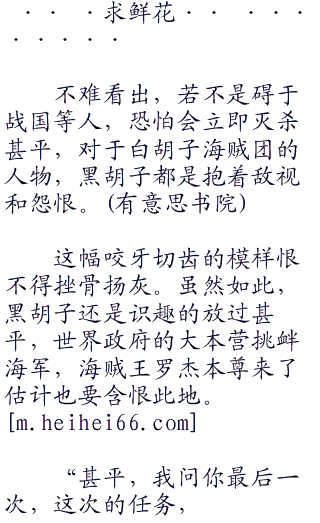 · · ·求鲜花· · · · ·
· · · · ·
不难看出，若不是碍于
战国等人，恐怕会立即灭杀
甚平，对于白胡子海贼团的
人物，黑胡子都是抱着敌视
和怨恨。(有意思书院)
这幅咬牙切齿的模样恨
不得挫骨扬灰。虽然如此，
黑胡子还是识趣的放过甚
平，世界政府的大本营挑衅
海军，海贼王罗杰本尊来了
估计也要含恨此地。
[m.heihei66.com]
“甚平，我问你最后一
次，这次的任务，